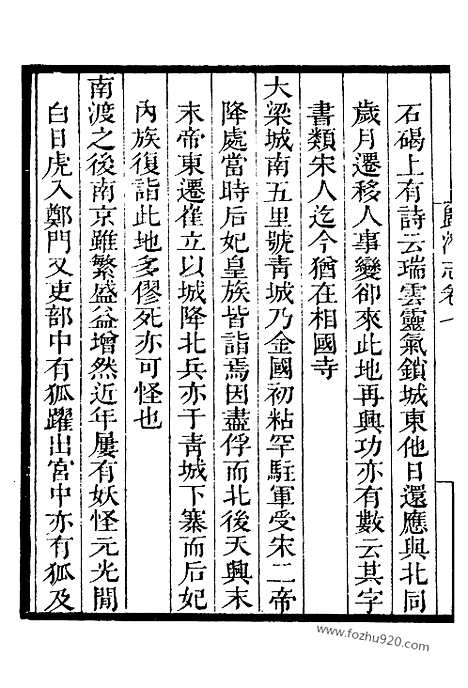 歸潛志卷
石碣上有詩云瑞雲靈氣鎖城東他日還應與北同
歲月遷移人事變卻來此地再興功亦有數云其字
書類宋人迄今猶在相國寺
大梁城南五里號靑城乃金國初粘罕駐軍受宋二帝
降處當時后妃皇族皆詣焉因盡俘而北後天興末
末帝東遷崔立以城降北兵亦于靑城下寨而后妃
內族復詣此地多僇死亦可怪也
南渡之後南京雖繁盛益增然近年屢有妖怪元光間
白日虎入鄭門又吏部中有狐躍出宮中亦有狐及
www.fozhu920.com